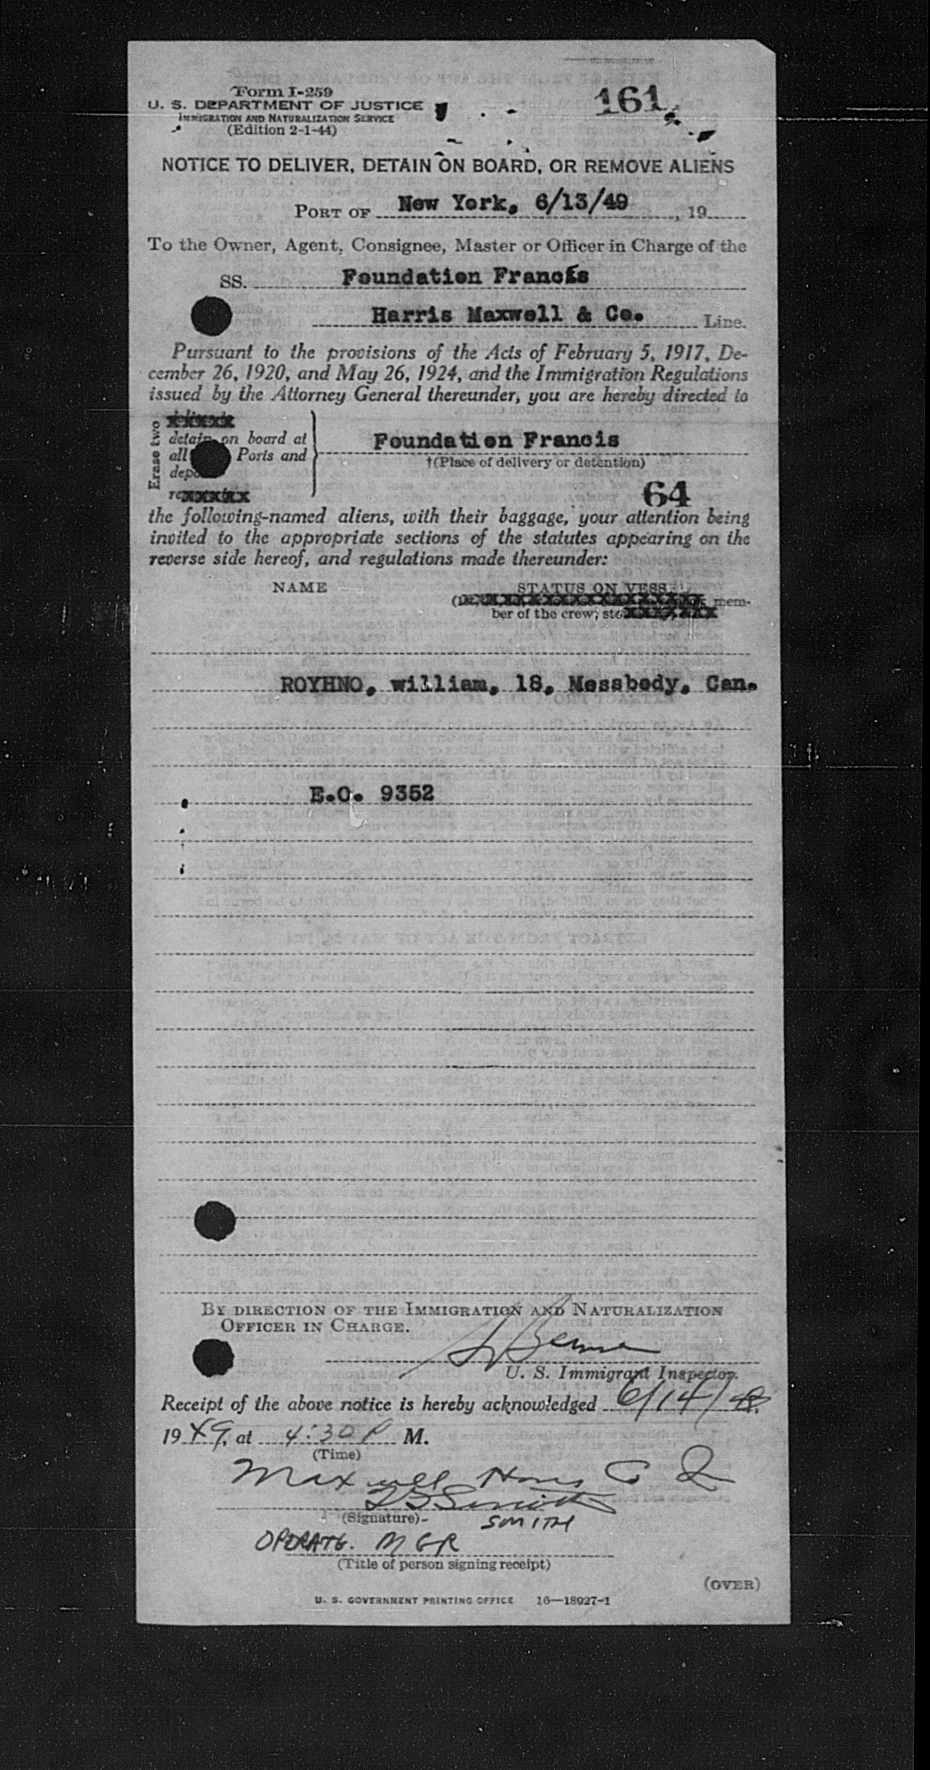 Form I-259
161
U. S. DEPARTMENT OF JUSTICE
IMMIGRATION AND NATURALIZATION SERVICE
(Edition 2-1-44)
NOTICE TO DELIVER, DETAIN ON BOARD, OR REMOVE ALIENS
PORT OF New York, 6/13/49, 19
To the Owner, Agent, Consignee, Master or Officer in Charge of the
SS. Foundation Francis
Harris Maxwell & Co. Line.
Pursuant to the provisions of the Acts of February 5, 1917, De-
cember 26, 1920, and May 26, 1924, and the Immigration Regulations
issued by the Attorney General thereunder, you are hereby directed to
Erase two
detain on board at
all Ports and
Foundation Francis
†(Place of delivery or detention)
64
the following-named aliens, with their baggage, your attention being
invited to the appropriate sections of the statutes appearing on the
reverse side hereof, and regulations made thereunder:
NAME STATUS ON VESS
mem-
ber of the crew;
ROYHNO, william, 18, Messbody, Can.
E.O. 9352
BY DIRECTION OF THE IMMIGRATION AND NATURALIZATION
OFFICER IN CHARGE.
U. S. Immigrant Inspector.
Receipt of the above notice is hereby acknowledged 6/14/
1949, at 4:30 P M.
(Time)
Maxwell Harris Co
Smith
(Signature)- SMITH
OPERATG. MGR
(Title of person signing receipt)
(OVER)
U. S. GOVERNMENT PRINTING OFFICE 16—18027-1